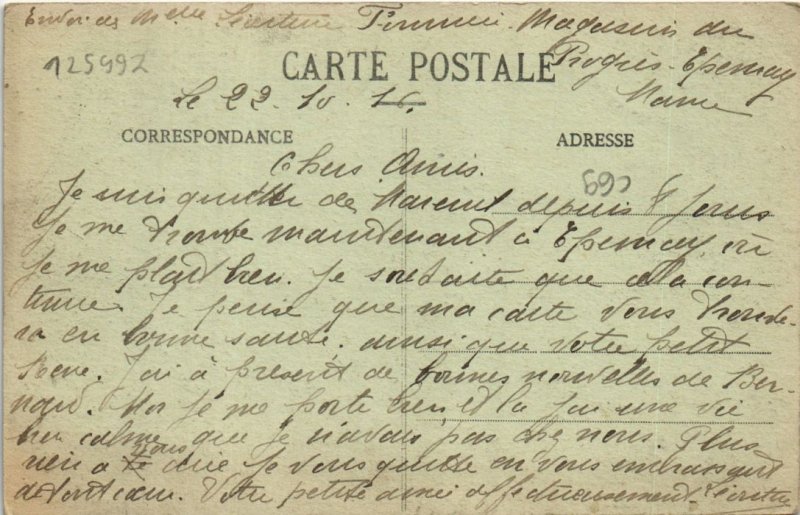 Envoi de Melle Firmin. Magasin du
125497
CARTE POSTALE
Progrès. Epernay
Le 23. 10. 16.
Marne
CORRESPONDANCE
ADRESSE
Chers Amis.
693
Je suis quitter de Mareuil depuis 8 jours
Je me trouve maintenant à Epernay, où
je me plait bien. Je souhaite que cela con-
tinue. Je pense que ma carte vous trouve-
ra en bonne santé. ainsi que votre petit
René. J'ai à présent de bonnes nouvelles de Ber-
nard. Moi je me porte bien, et la j'ai une vie
bien calme que je n'avais pas chez nous. Plus
rien a vous dire je vous quitte en vous embrassant
de tout cœur. Votre petite amie affectueusement